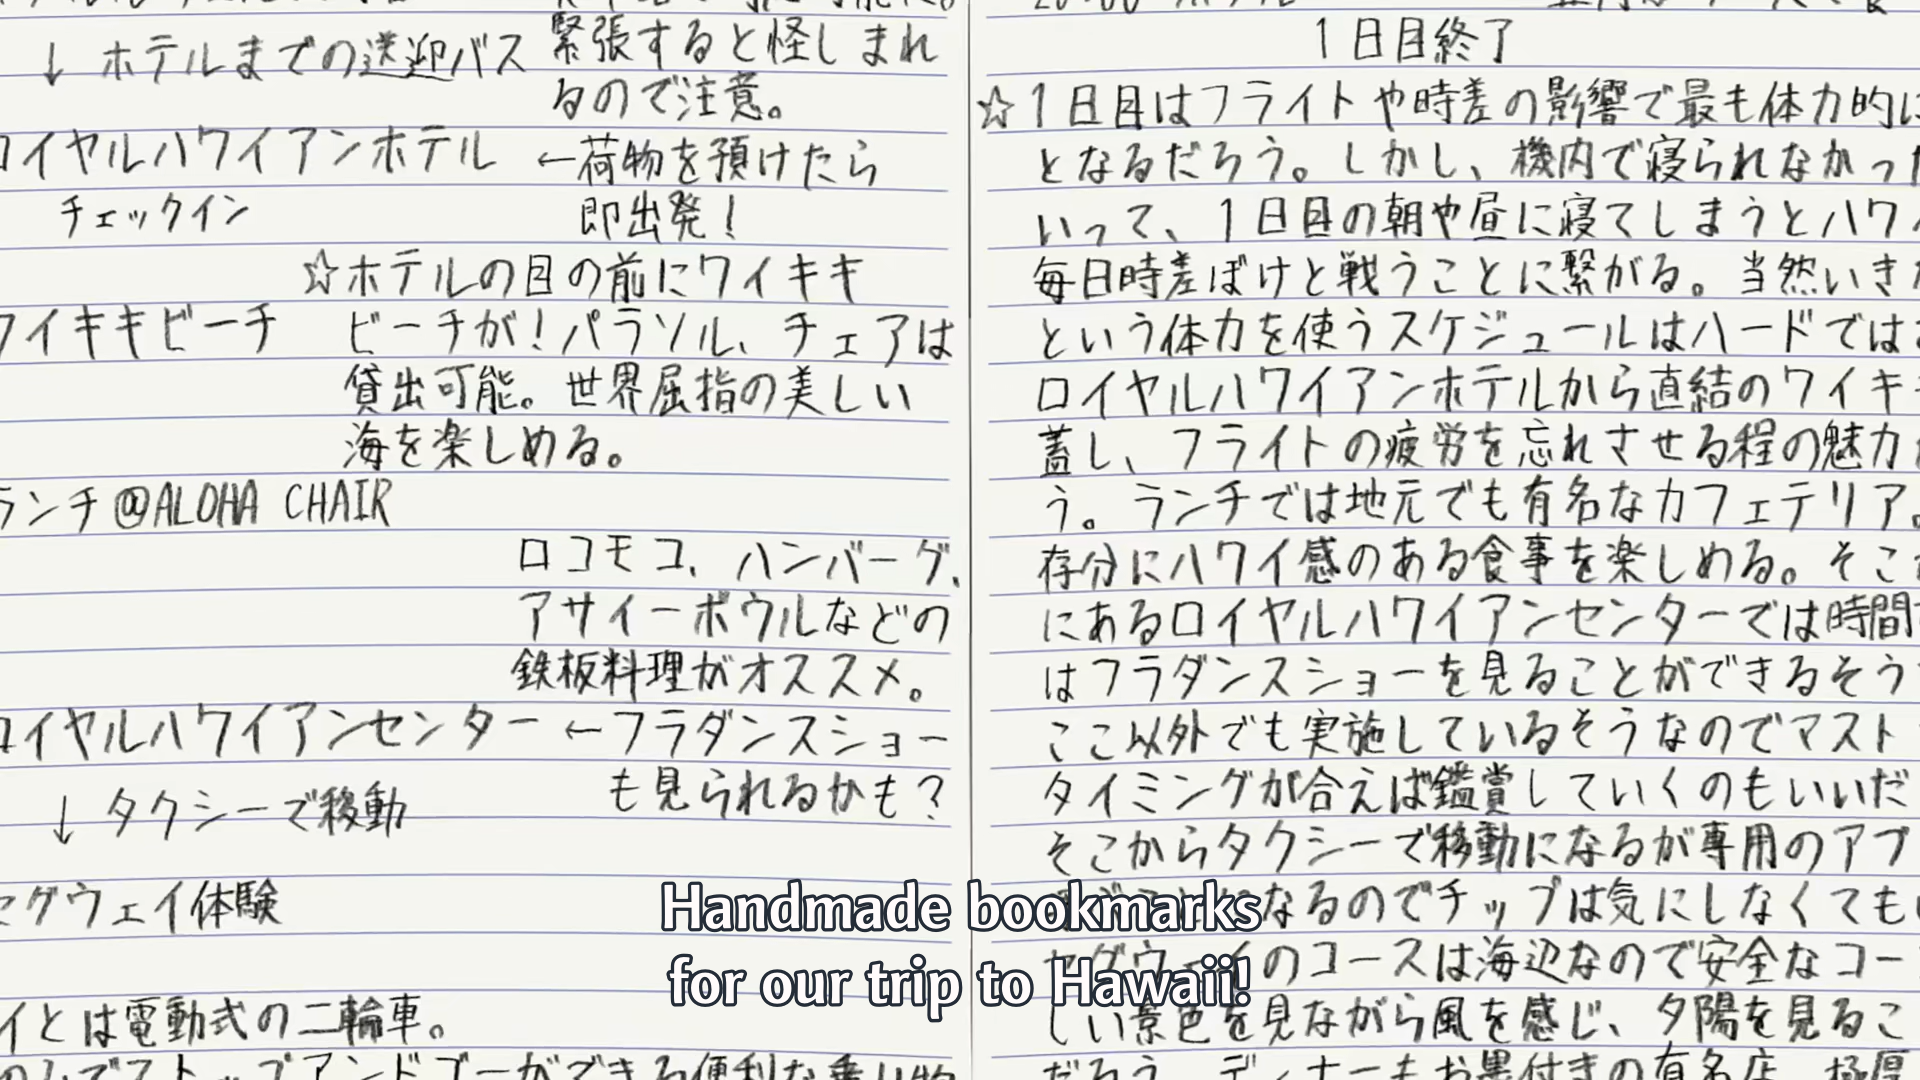 ↓ ホテルまでの送迎バス
緊張すると怪しまれ
るので注意。
ロイヤルハワイアンホテル
←荷物を預けたら
即出発！
チェックイン
☆ホテルの目の前にワイキキ
ワイキキビーチ
ビーチが！パラソル、チェアは
貸出可能。世界屈指の美しい
海を楽しめる。
ランチ@ALOHA CHAIR
ロコモコ、ハンバーグ、
アサイーボウルなどの
鉄板料理がオススメ。
ロイヤルハワイアンセンター
←フラダンスショー
も見られるかも？
↓ タクシーで移動
セグウェイ体験
イとは電動式の二輪車。
1日目終了
☆1日目はフライトや時差の影響で最も体力的に
となるだろう。しかし、機内で寝られなかった
いって、1日目の朝や昼に寝てしまうとハワ
毎日時差ぼけと戦うことに繋がる。当然いき
という体力を使うスケジュールはハードでは
ロイヤルハワイアンホテルから直結のワイキ
蓋し、フライトの疲労を忘れさせる程の魅力
う。ランチでは地元でも有名なカフェテリア。
存分にハワイ感のある食事を楽しめる。そこ
にあるロイヤルハワイアンセンターでは時間
はフラダンスショーを見ることができるそう
ここ以外でも実施しているそうなのでマスト
タイミングが合えば鑑賞していくのもいいだ
そこからタクシーで移動になるが専用のアプ
なるのでチップは気にしなくても
セグウェイのコースは海辺なので安全なコー
しい景色を見ながら風を感じ、夕陽を見るこ
だろう。ディナーもお墨付きの有名店。極厚
Handmade bookmarks
for our trip to Hawaii!